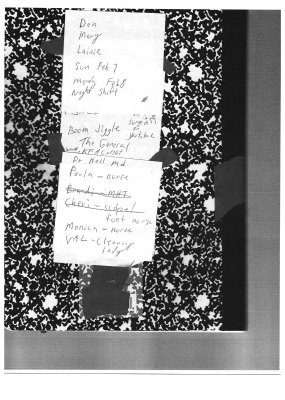 Don
Mary
Lainie
Sun Feb 7
Mundy Feb 8
Night Shift
on
youtube
Boom Jiggle
The General
Dr Hall md
Paula - nurse
Brandi - MHT
Cheri -
foot nurse
Monica - nurse
VAL - Cleaning
lady